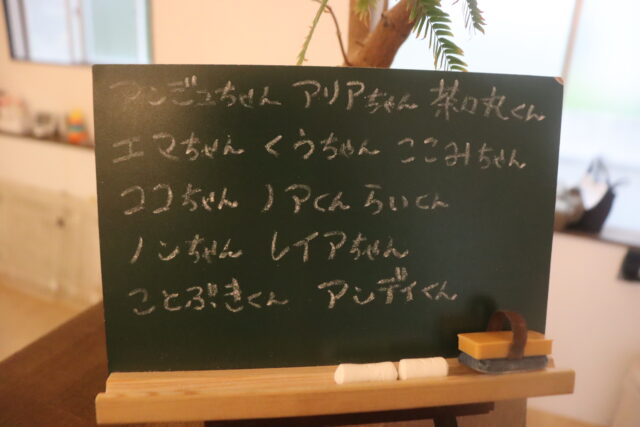 アンジュちゃん アリアちゃん 茶々丸くん
エマちゃん くうちゃん ここみちゃん
ココちゃん ノアくん らいくん
ノンちゃん レイアちゃん
ことぶきくん アンディくん